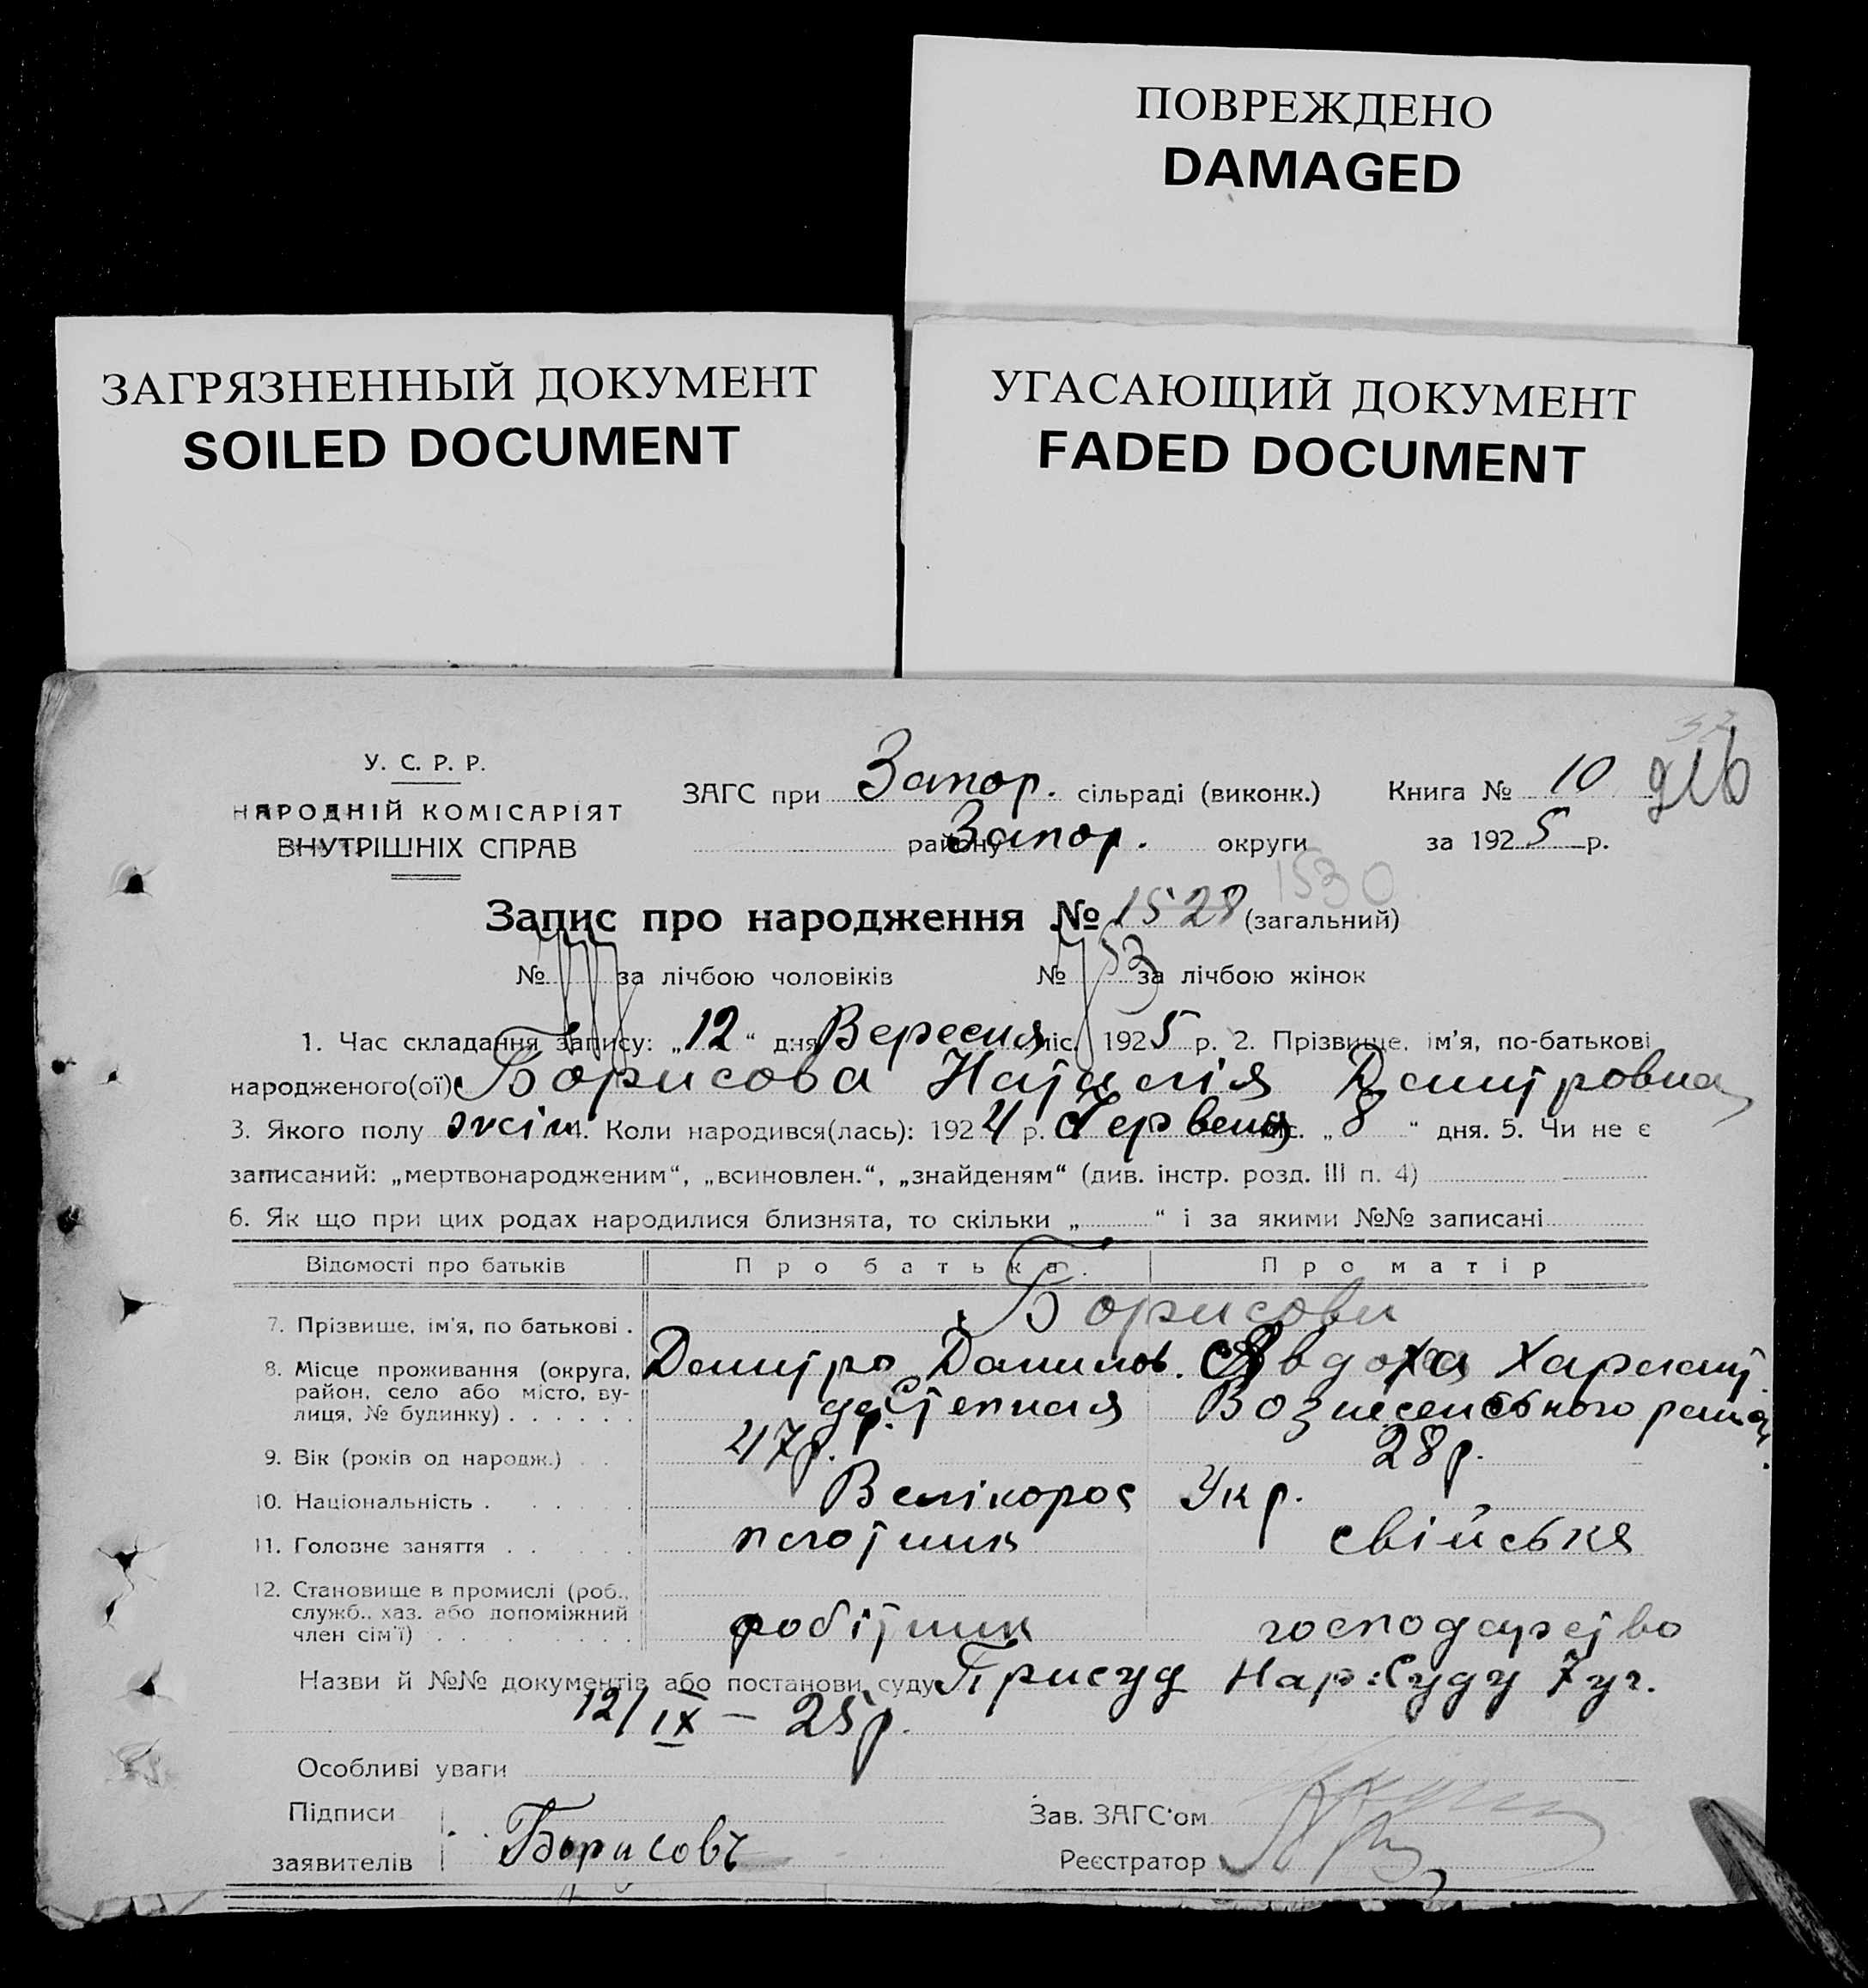 ПОВРЕЖДЕНО
DAMAGED
ЗАГРЯЗНЕННЫЙ ДОКУМЕНТ
SOILED DOCUMENT
УГАСАЮЩИЙ ДОКУМЕНТ
FADED DOCUMENT
У. С. Р. Р.
НАРОДНІЙ КОМІСАРІЯТ
ВНУТРІШНІХ СПРАВ
ЗАГС при Запор. сільраді (виконк.) Книга № 10
району Запор. округи за 1925 р.
1530
Запис про народження № 1528 (загальний)
№ за лічбою чоловіків № 753 за лічбою жінок
1. Час складання запису: „12“ дня Вересня міс. 1925 р. 2. Прізвище, ім'я, по-батькові
народженого(ої) Борисова Наталія Дмитровна
3. Якого полу жін 4. Коли народився(лась): 1924 р. Червеня міс. „8“ дня. 5. Чи не є
записаний: „мертвонародженим“, „всиновлен.“, „знайденям“ (див. інстр. розд. III п. 4)
6. Як що при цих родах народилися близнята, то скільки „ “ і за якими №№ записані
Відомості про батьків Про батька. Про матір
7. Прізвище, ім'я, по батькові . Борисови
8. Місце проживання (округа, Дмитро Данилов. Явдоха Харламп.
район, село або місто, ву- Степная Вознесенського району
лиця, № будинку) . . . . . .
9. Вік (років од народж.) . . 47р. 28р.
10. Національність . . . . . Велікорос Укр.
11. Головне заняття . . . . . плотник свійське
12. Становище в промислі (роб.,
служб., хаз. або допоміжний робітник господарство
член сім'ї) . . . . . . .
Назви й №№ документів або постанови суду Присуд Нар:Суду 7 уч.
12/IX – 25р.
Особливі уваги
Підписи Зав. ЗАГС'ом
заявителів Борисовъ Реєстратор